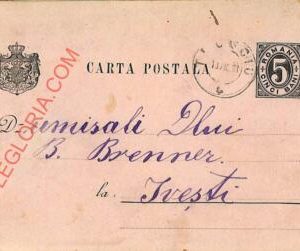 CARTA POSTALA
ROMANIA
5
CINCI BANI
D-umisali Dlui
B. Brenner.
la Ivești
LEGLORIA.COM